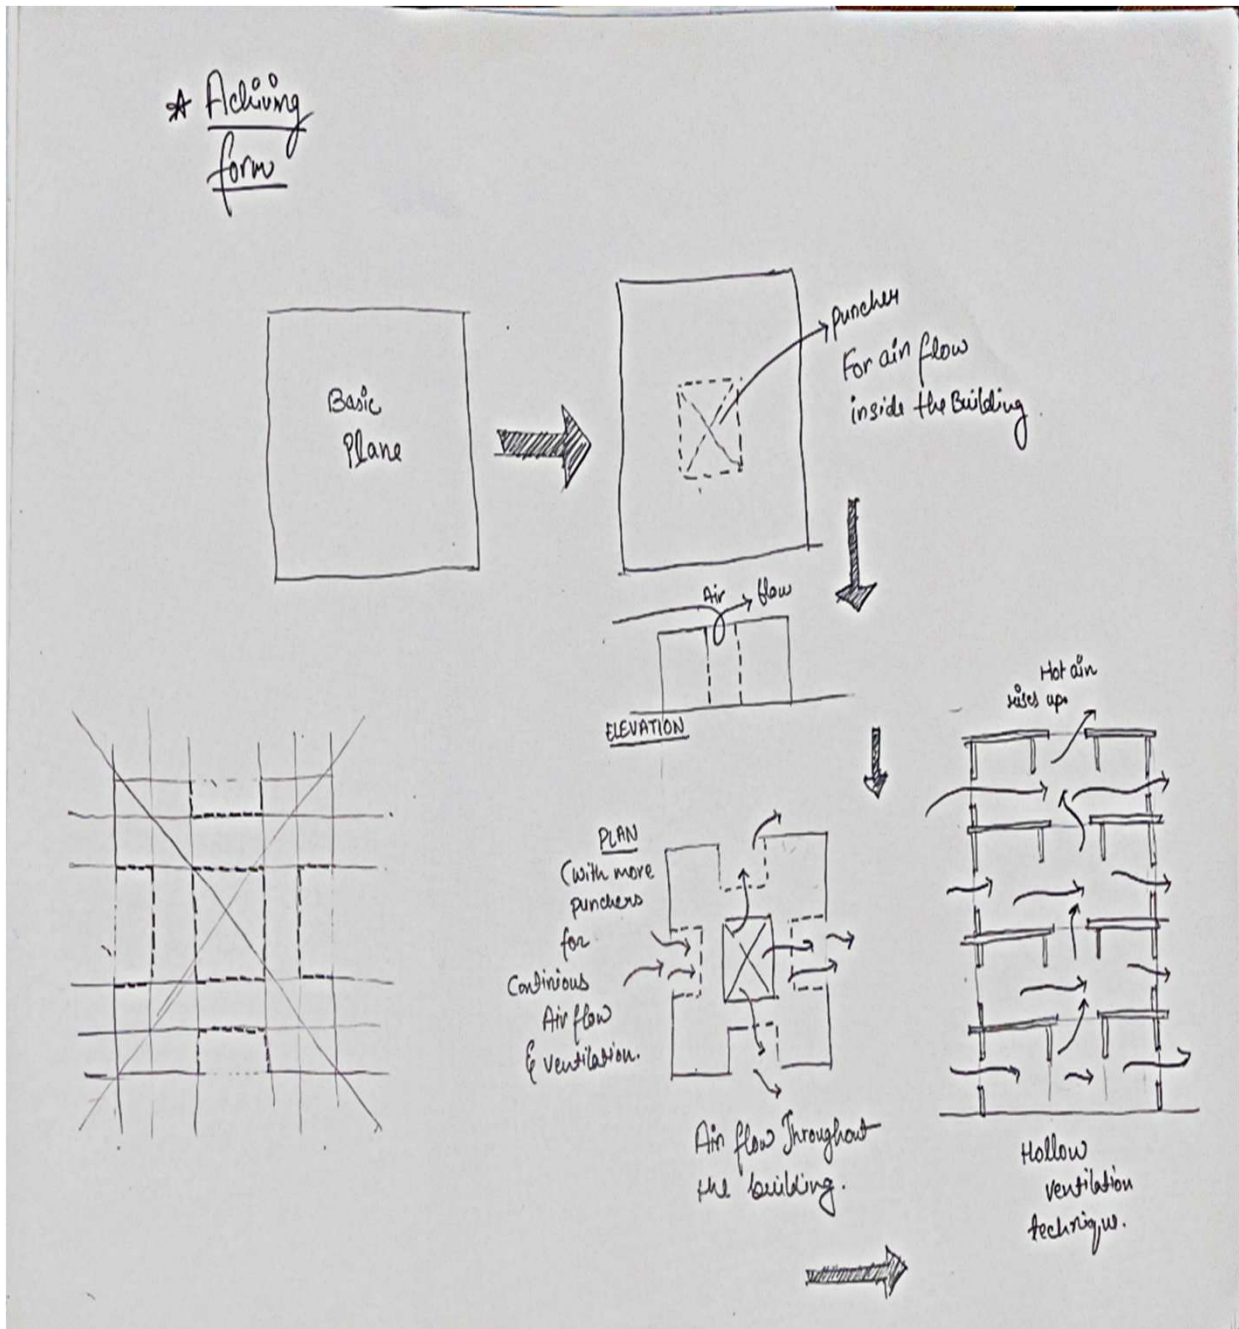 * Achiving
form
Basic
Plane
puncher
For air flow
inside the Building.
Air flow
ELEVATION
Hot air
rises up.
PLAN
(with more
punchers
for
Continious
Air flow
& ventilation.
Air flow Throughout
the building.
Hollow
ventilation
technique.